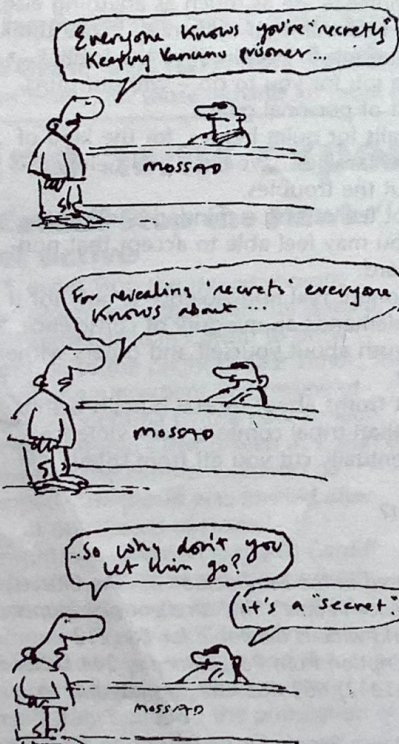 Everyone knows you're "secretly"
Keeping Vanunu prisoner...
MOSSAD
For revealing 'secrets' everyone
knows about...
MOSSAD
..So why don't you
let him go?
it's a "secret"
MOSSAD